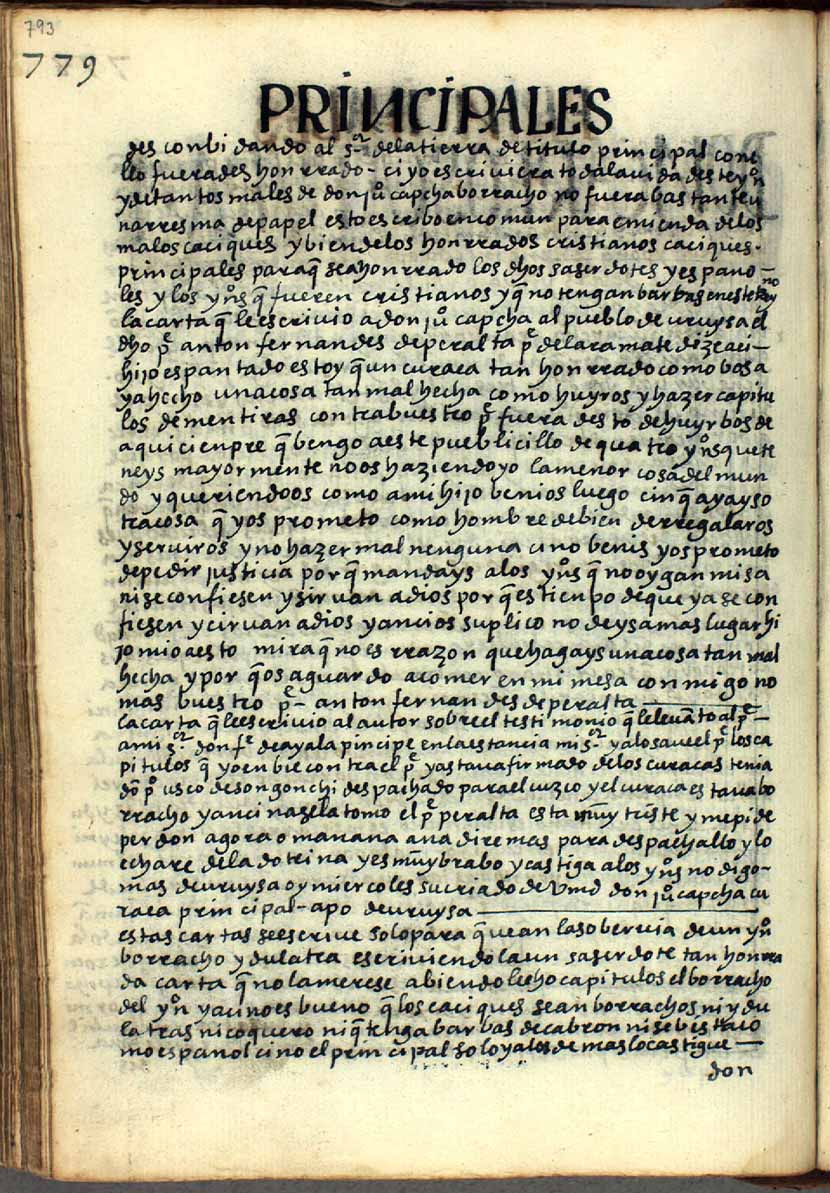 793
779
PRINCIPALES
des conbidando al s.or dela tierra de titulo principal con e
llo fuerades honrrado - ci yo escriviera toda la vida deste yn.o
y de tantos males de don ju.o capcha borracho no fuera bastante u
na rresma de papel esto escribo en comun para emienda de los
malos caciques y bien delos honrrados cristianos caciques.
principales para q̃ sea honrrado los dhos saserdotes y espano-
les y los yn.os q̃ fueren cristianos y q̃ no tengan barbas en este rreyno
la carta q̃ le escrivio a don ju.o capcha al pueblo de uruysa el
dho p.e anton fernandes de peralta p.e dela ramate dize aci-
hijo espantado estoy q̃ un curaca tan honrrado como bos a
ya hecho una cosa tan mal hecha como huyros y hazer capitu
los de mentiras contra buestro p.e fuera desto de huyr bos de
aqui cienpre q̃ bengo a este pueblicillo de quatro yn.os que te
neys mayormente no os haziendo yo la menor cosa del mun
do y queriendoos como a mi hijo benios luego cin q̃ ayays o
tra cosa q̃ yo s prometo como hombre de bien de rregalaros
y serviros y no hazer mal nenguna ci no benis yo s prometo
de pedir justicia por q̃ mandays a los yn.os q̃ no oygan misa
ni se confiesen y sirvan a dios por q̃ es tienpo de que ya se con
fiesen y cirvan a dios y anci os suplico no deys a mas lugar hi
jo mio a esto mira q̃ no es rrazon que hagays una cosa tan mal
hecha y por q̃ os aguardo a comer en mi mesa conmigo no
mas buestro p.e - anton fernandes de peralta
la carta q̃ le escrivio al autor sobre el testimonio q̃ le levanto al p.e -
a mi s.or don f.e de ayala pincipe en la estancia mi s.or ya lo save el p.e los ca
pitulos q̃ yo enbie contra el p.e ya stava firmado de los curacas tenia
dõ p.o usco de songonchi despachado para el cuzco y el curaca estava bo
rracho y anci na se la tomo el p.e peralta esta muy triste y me pide
perdon agora o manana anadiremas para despachallo y lo
echare dela dotrina y es muy brabo y castiga a los yn.os no digo-
mas de uruysa oy miercoles su criado de Vmd don ju.o capcha cu
raca principal - apo de uruysa
estas cartas se escrive solo para q̃ vean la sobervia de un yn.o
borracho y dulatra escriviendo la un saserdote tan honrra
da carta q̃ no la merese abiendo lecho capitulos el borracho
del yn.o y aci no es bueno q̃ los caciques sean borrachos ni ydu
latras ni coquero ni q̃ tenga barbas de cabron ni se bista co
mo espanol cino el principal solo y a los demas lo castigue -
don